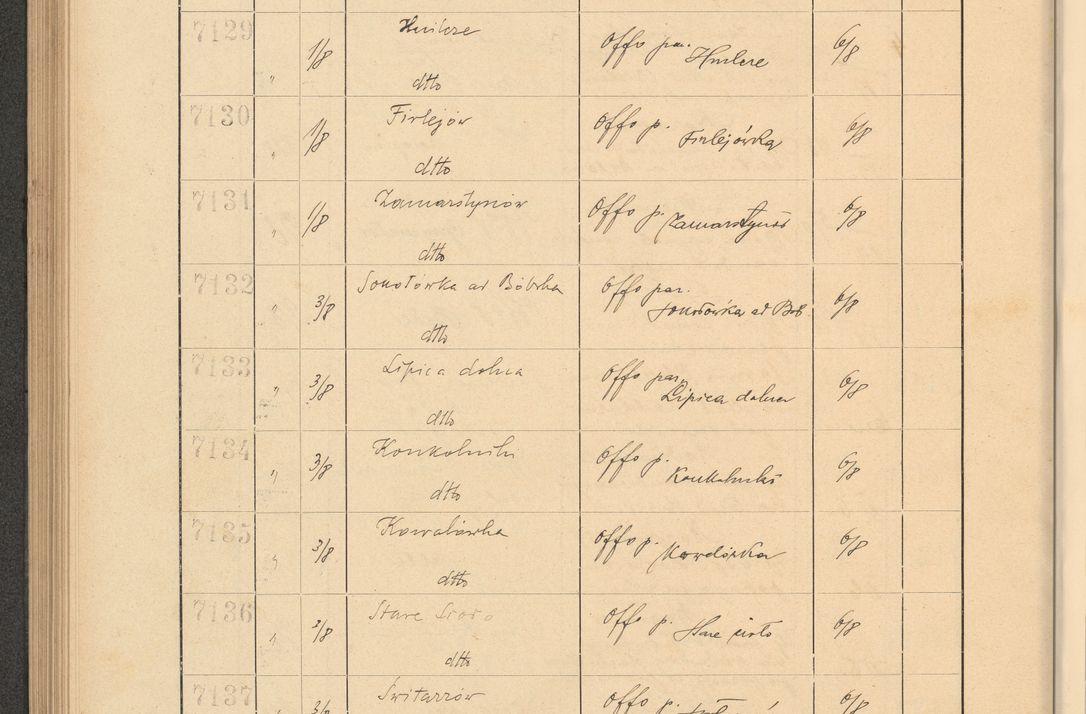 7129 " 1/8 Hnilcze Offo par. Hnilcze 6/8
dtto
7130 " 1/8 Firlejów Offo p. Firlejówka 6/8
dtto
7131 " 1/8 Zamarstynów Offo p. Zamarstynów 6/8
dtto
7132 " 3/8 Sokołówka ad Bóbrka Offo par. Sokołówka ad Bob. 6/8
dtto
7133 " 3/8 Lipica dolna Offo par. Lipica dolna 6/8
dtto
7134 " 3/8 Konkolniki Offo p. Konkolniki 6/8
dtto
7135 " 3/8 Kowalówka Offo p. Kowalówka 6/8
dtto
7136 " 3/8 Stare Sioło Offo p. Stare sioło 6/8
dtto
7137 3/8 Świtarzów Offo p. 6/8